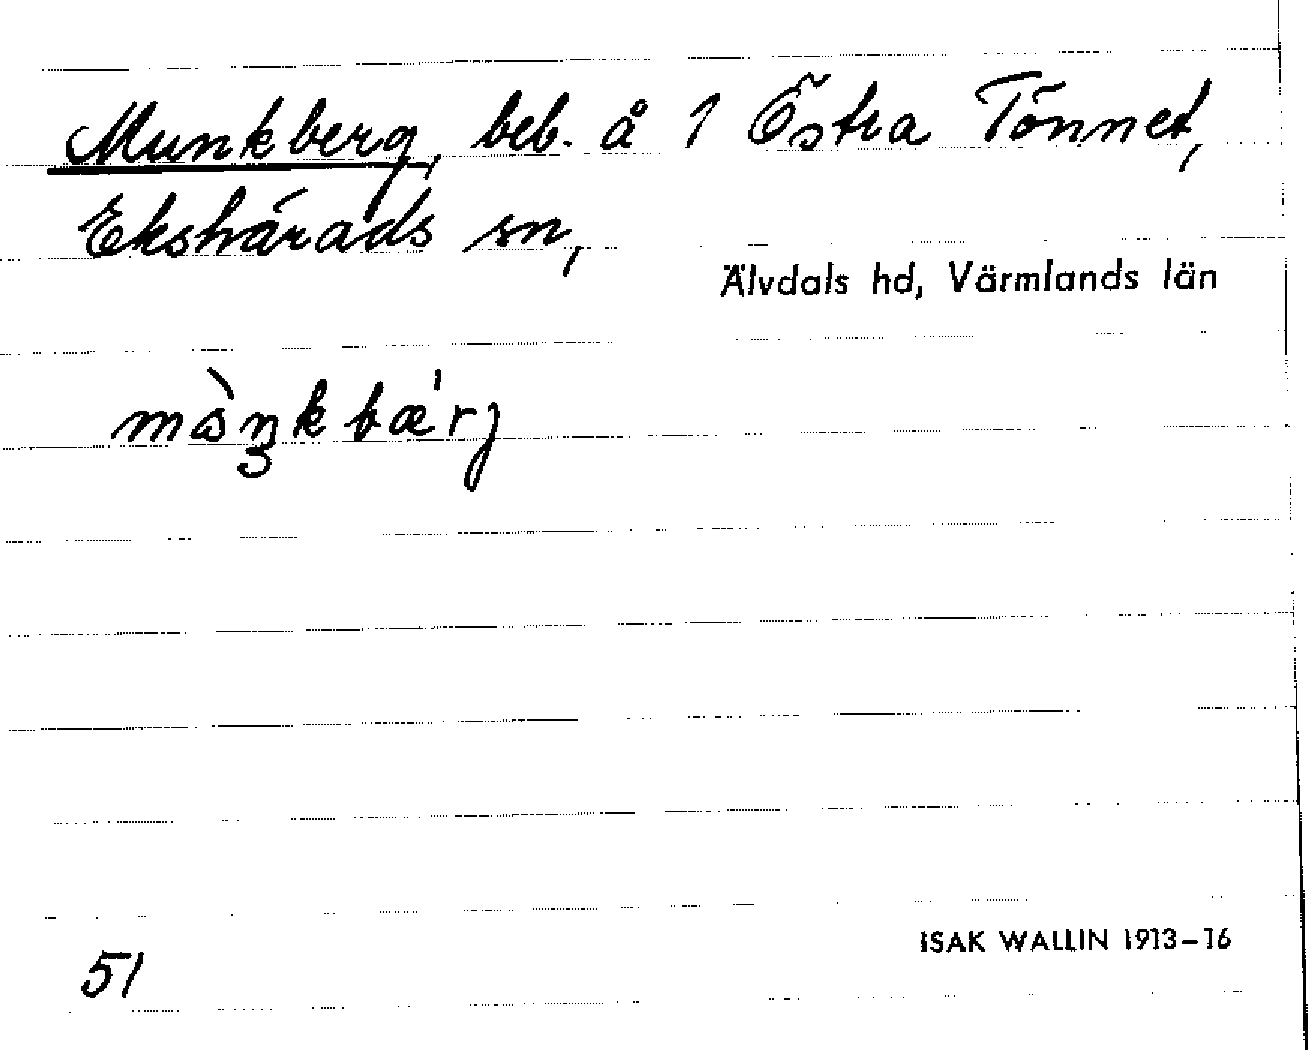 Munkberg, beb. å 1 Östra Tönnet,
Ekshärads sn,
Älvdals hd, Värmlands län
mòŋkbǽrj
51
ISAK WALLIN 1913-16